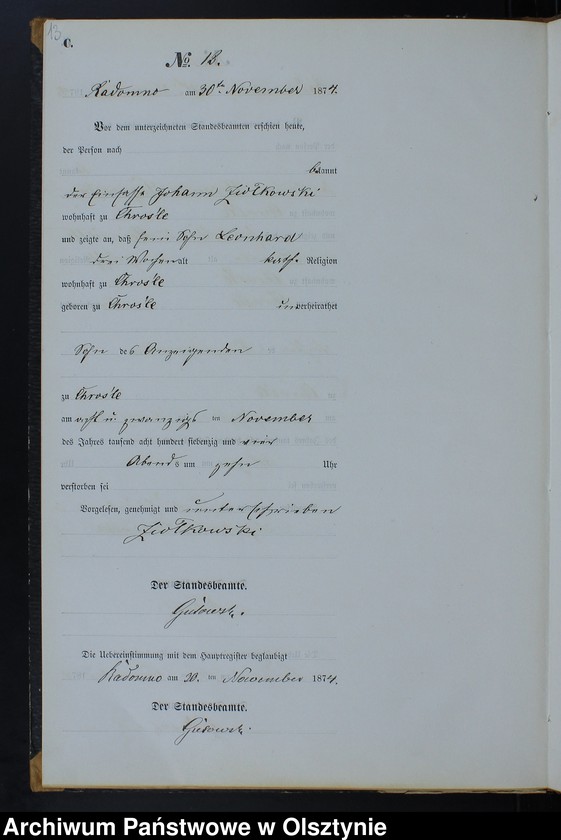 13
C.
No. 12.
Radomno am 30ten November 1874.
Vor dem unterzeichneten Standesbeamten erschien heute,
der Person nach
bekannt
der Einsasse Johann Ziolkowski
wohnhaft zu Chrosle
und zeigte an, daß sein Sohn Leonhard
drei Wochen alt kath. Religion
wohnhaft zu Chrosle
geboren zu Chrosle unverheirathet
Sohn des Anzeigenden
zu Chrosle
am acht u. zwanzigsten November
des Jahres tausend acht hundert siebenzig und vier
Abends um zehn Uhr
verstorben sei
Vorgelesen, genehmigt und unterschrieben
Ziolkowski
Der Standesbeamte.
Die Uebereinstimmung mit dem Hauptregister beglaubigt
Radomno am 30. ten November 1874.
Der Standesbeamte.
Archiwum Państwowe w Olsztynie